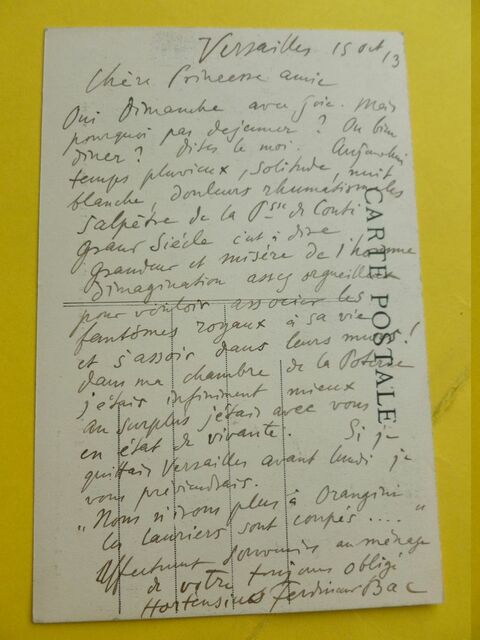 Versailles 15 oct 13
Chère Princesse amie
Oui Dimanche avec joie. Mais
pourquoi pas dejeuner ? Ou bien
diner ? Dites le moi. Aujourd'hui
temps pluvieux, solitude, nuit
blanche, douleurs rhumatismales
Salpêtre de la Psse de Conti
Grand Siècle c'est à dire
grandeur et misère de l'homme
D'imagination assez orgueilleux
pour vouloir associer les
fantômes royaux à sa vie
et s'assoir dans leurs murs !
dans ma chambre de la Poterne
j'étais infiniment mieux
au surplus j'étais avec vous
en état de vivante. Si je
quittais Versailles avant lundi je
vous préviendrais.
"Nous n'irons plus à
les lauriers sont coupés .... "
souvenirs au ménage
de votre toujours obligé
Hortensius Ferdinand Bac
CARTE POSTALE